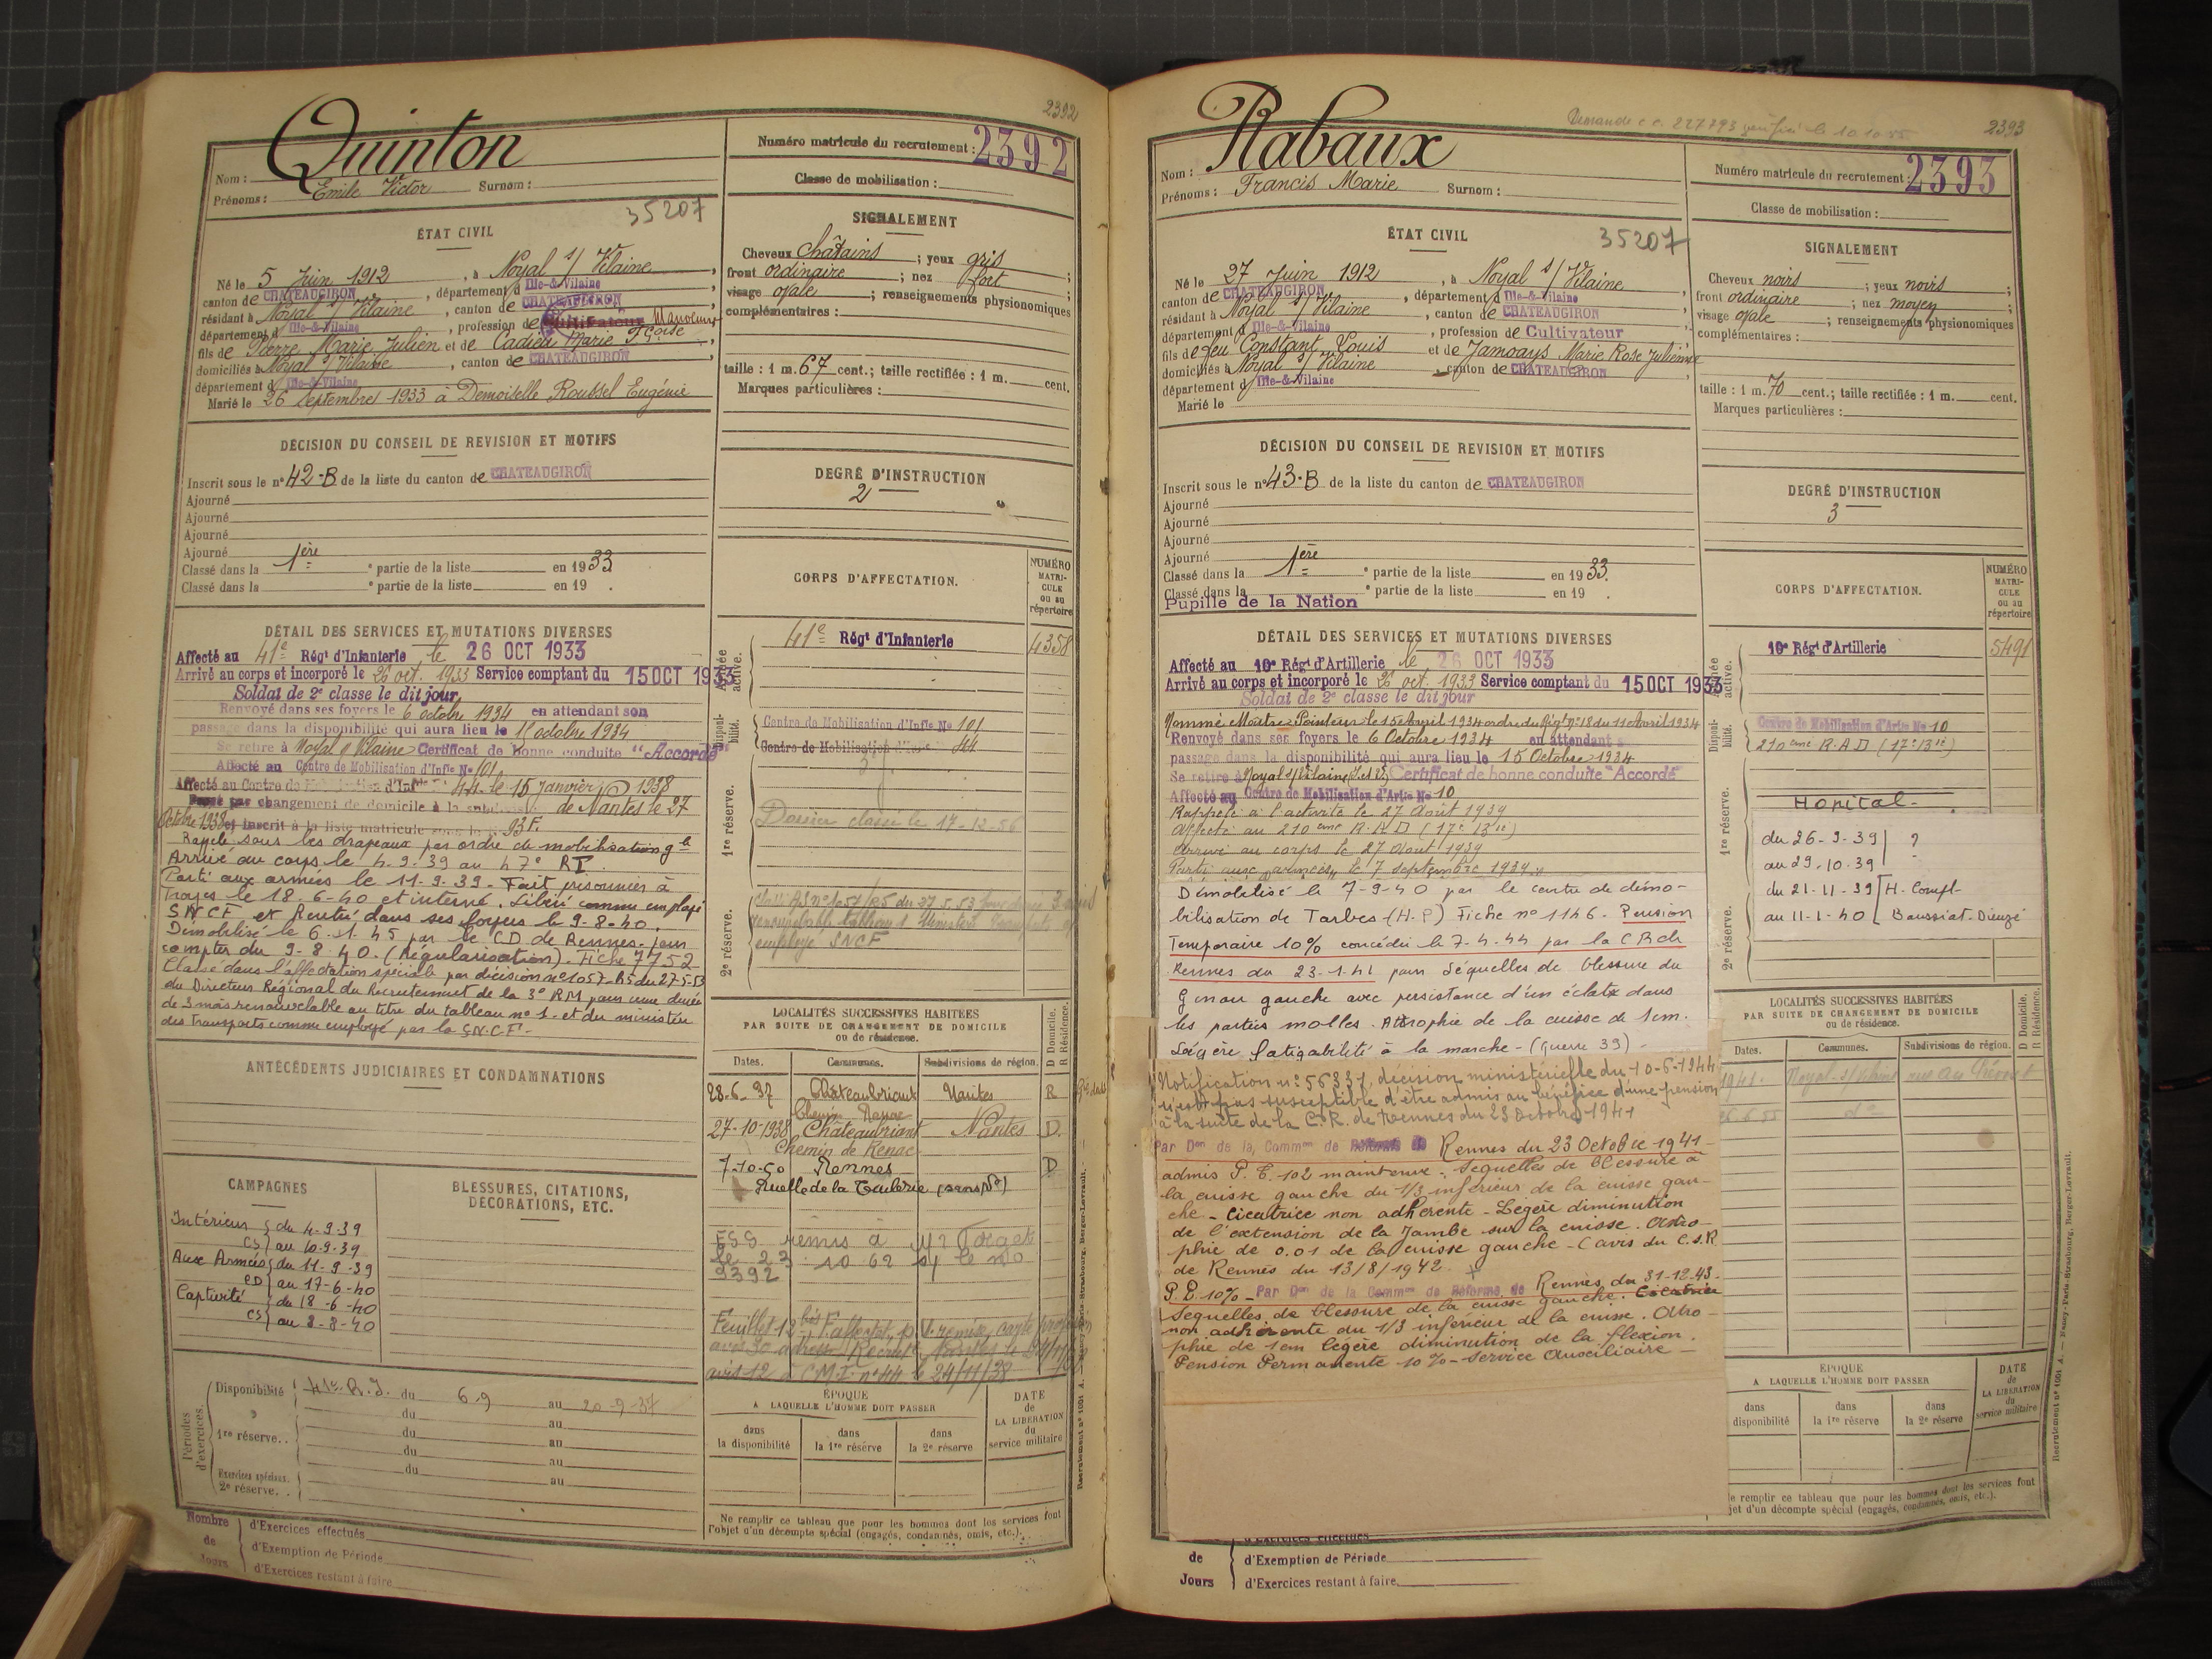 2392
Quinton
Nom :
Prénoms : Emile Victor Surnom :
Numéro matricule du recrutement : 2392
Classe de mobilisation :
35207
ÉTAT CIVIL
Né le 5 Juin 1912, à Noyal s/ Vilaine,
canton de CHATEAUGIRON, département d Ille-&-Vilaine
résidant à Noyal s/ Vilaine, canton de CHATEAUGIRON
département d Ille-&-Vilaine, profession de Cultivateur Manœuvre
fils de Pierre Marie Julien et de Cadieu Marie Fçoise,
domiciliés à Noyal s/ Vilaine, canton de CHATEAUGIRON
département d Ille-&-Vilaine
Marié le 26 Septembre 1933 à Demoiselle Roussel Eugénie
SIGNALEMENT
Cheveux châtains ; yeux gris ;
front ordinaire ; nez fort ;
visage ovale ; renseignements physionomiques
complémentaires :
taille : 1 m. 67 cent. ; taille rectifiée : 1 m. cent.
Marques particulières :
DÉCISION DU CONSEIL DE REVISION ET MOTIFS
Inscrit sous le n° 42-B de la liste du canton de CHATEAUGIRON
Ajourné
Ajourné
Ajourné
Ajourné
Classé dans la 1ère e partie de la liste en 1933
Classé dans la e partie de la liste en 19 .
DEGRÉ D'INSTRUCTION
2
DÉTAIL DES SERVICES ET MUTATIONS DIVERSES
Affecté au 41e Régt d'Infanterie le 26 OCT 1933
Arrivé au corps et incorporé le 26 oct. 1933 Service comptant du 15 OCT 1933
Soldat de 2e classe le dit jour
Renvoyé dans ses foyers le 6 octobre 1934 en attendant son
passage dans la disponibilité qui aura lieu le 15 octobre 1934
Se retire à Noyal s/ Vilaine Certificat de bonne conduite "Accordé"
Affecté au Centre de Mobilisation d'Infie No 101
Affecté au Centre de Mobilisation d'Infie 44 le 15 Janvier 1938
Passé par changement de domicile à la subdivision de Nantes le 27
Octobre 1938 et inscrit à la liste matricule sous le n° 93 F.
Rappelé sous les drapeaux par ordre de mobilisation gle
Arrivé au corps le 4-9-39 au 47e RI
Parti aux armées le 11-9-39 - Fait prisonnier à
Troyes le 18-6-40 et interné. Libéré comme employé
SNCF et Rentré dans ses foyers le 9-8-40.
Démobilisé le 6.11.45 par le CD de Rennes - pour
compter du 9-8-40. (Régularisation). Fiche 7752
Classé dans l'affectation spéciale par décision n° 1057-R5 du 27-5-53
du Directeur Régional du Recrutement de la 3e RM pour une durée
de 3 mois renouvelable au titre du tableau n° 1 - et du ministère
des Transports comme employé par la S.N.C.F.
CORPS D'AFFECTATION.
NUMÉRO MATRICULE ou au répertoire
Armée active.
41e Régt d'Infanterie 4358
Disponibilité.
Centre de Mobilisation d'Infie No 101
Centre de Mobilisation d'Infie 44
1re réserve.
Dossier classé le 17-12-56
2e réserve.
renouvelable tableau 1 Ministère Transports
employé SNCF
LOCALITÉS SUCCESSIVES HABITÉES
PAR SUITE DE CHANGEMENT DE DOMICILE
ou de résidence.
Dates. Communes. Subdivisions de région. D Domicile. R Résidence.
28-6-37 Châteaubriant Nantes R
27-10-1938 Châteaubriant Nantes D.
Chemin de Renac
7-10-50 Rennes D
Ruelle de la Tuilerie (sans No)
FSS remis à
le 23 10 62 s/ le no
2392
avis 12 CMI n° 44 le 24/11/38
ANTÉCÉDENTS JUDICIAIRES ET CONDAMNATIONS
CAMPAGNES
Intérieur CS du 4-9-39 au 10-9-39
Aux Armées CD du 11-9-39 au 17-6-40
Captivité CS du 18-6-40 au 8-8-40
BLESSURES, CITATIONS,
DÉCORATIONS, ETC.
Périodes d'exercices.
Disponibilité 41e R.I. du 6-9 au 20-9-37
du au
1re réserve. . du au
du au
Exercices spéciaux. du au
2e réserve. .
ÉPOQUE
A LAQUELLE L'HOMME DOIT PASSER
dans la disponibilité
dans la 1re réserve
dans la 2e réserve
DATE de LA LIBÉRATION du service militaire
Ne remplir ce tableau que pour les hommes dont les services font
l'objet d'un décompte spécial (engagés, condamnés, omis, etc.).
Nombre de Jours
d'Exercices effectués
d'Exemption de Période
d'Exercices restant à faire
2393
Rabaux
Nom :
Prénoms : Francis Marie Surnom :
Numéro matricule du recrutement : 2393
Classe de mobilisation :
35207
ÉTAT CIVIL
Né le 27 Juin 1912, à Noyal s/ Vilaine
canton de CHATEAUGIRON, département d Ille-&-Vilaine
résidant à Noyal s/ Vilaine, canton de CHATEAUGIRON
département d Ille-&-Vilaine, profession de Cultivateur
fils de feu Constant Louis et de Jamoays Marie Rose Julienne
domiciliés à Noyal s/ Vilaine, canton de CHATEAUGIRON
département d Ille-&-Vilaine
Marié le
SIGNALEMENT
Cheveux noirs ; yeux noirs ;
front ordinaire ; nez moyen ;
visage ovale ; renseignements physionomiques
complémentaires :
taille : 1 m. 70 cent. ; taille rectifiée : 1 m. cent.
Marques particulières :
DÉCISION DU CONSEIL DE REVISION ET MOTIFS
Inscrit sous le n° 43-B de la liste du canton de CHATEAUGIRON
Ajourné
Ajourné
Ajourné
Ajourné
Classé dans la 1ère e partie de la liste en 1933.
Classé dans la e partie de la liste en 19 .
Pupille de la Nation
DEGRÉ D'INSTRUCTION
3
DÉTAIL DES SERVICES ET MUTATIONS DIVERSES
Affecté au 10e Régt d'Artillerie le 26 OCT 1933
Arrivé au corps et incorporé le 26 oct. 1933 Service comptant du 15 OCT 1933
Soldat de 2e classe le dit jour
Nommé Maître Pointeur le 15 Avril 1934 ordre du Régt n° 18 du 11 Avril 1934
Renvoyé dans ses foyers le 6 Octobre 1934 en attendant
passage dans la disponibilité qui aura lieu le 15 Octobre 1934
Se retire à Noyal s/ Vilaine (I.et V.) Certificat de bonne conduite "Accordé"
Affecté au Centre de Mobilisation d'Artie No 10
Rappelé à l'activité le 27 Août 1939
Affecté au 210ème R.A.D (17e Bie)
Arrivé au corps le 27 Août 1939
Parti aux armées le 7 septembre 1939.
Démobilisé le 7-9-40 par le centre de démo-
bilisation de Tarbes - (H.P) Fiche n° 1146 - Pension
Temporaire 10% concédée le 7-4-44 par la CR de
Rennes du 23-1-41 pour Séquelles de blessure du
Genou gauche avec persistance d'un éclat dans
les parties molles. Attrophie de la cuisse de 1cm.
Légère fatigabilité à la marche - (Guerre 39) -
Notification n° 56331, décision ministérielle du 10-6-1944
n'est pas susceptible d'être admis au bénéfice d'une pension
à la suite de la C.R. de Rennes du 23 Octobre 1941
Par Don de la Common de Réforme de Rennes du 23 Octobre 1941
admis P.T. 10% maintenue. Séquelles de blessure à
la cuisse gauche du 1/3 inférieur de la cuisse gau-
che - Cicatrice non adhérente - Légère diminution
de l'extension de la Jambe sur la cuisse. Atro-
phie de 0.01 de la cuisse gauche - (avis du C.S.R
de Rennes du 13/8/1942.
P.P. 10% - Par Don de la Common de Réforme de Rennes du 31-12-43.
Séquelles de blessure de la cuisse gauche. Cicatrice
non adhérente du 1/3 inférieur de la cuisse. Atro-
phie de 1cm légère diminution de la flexion.
Pension Permanente 10% - Service Auxiliaire -
CORPS D'AFFECTATION.
NUMÉRO MATRICULE ou au répertoire
Armée active.
10e Régt d'Artillerie 5491
Disponibilité.
Centre de Mobilisation d'Artie No 10
210ème R.A.D (17e Bie)
1re réserve.
Hôpital -
du 26-9-39 au 29-10-39 ?
du 21-11-39 au 11-1-40 H. Compl-
2e réserve.
LOCALITÉS SUCCESSIVES HABITÉES
PAR SUITE DE CHANGEMENT DE DOMICILE
ou de résidence.
Dates. Communes. Subdivisions de région. D Domicile. R Résidence.
1941. Noyal s/ Vilaine
ÉPOQUE
A LAQUELLE L'HOMME DOIT PASSER
dans disponibilité
dans la 1re réserve
dans la 2e réserve
DATE de LA LIBÉRATION du service militaire
e remplir ce tableau que pour les hommes dont les services font
jet d'un décompte spécial (engagés, condamnés, omis, etc.).
de Jours
d'Exercices effectués
d'Exemption de Période
d'Exercices restant à faire